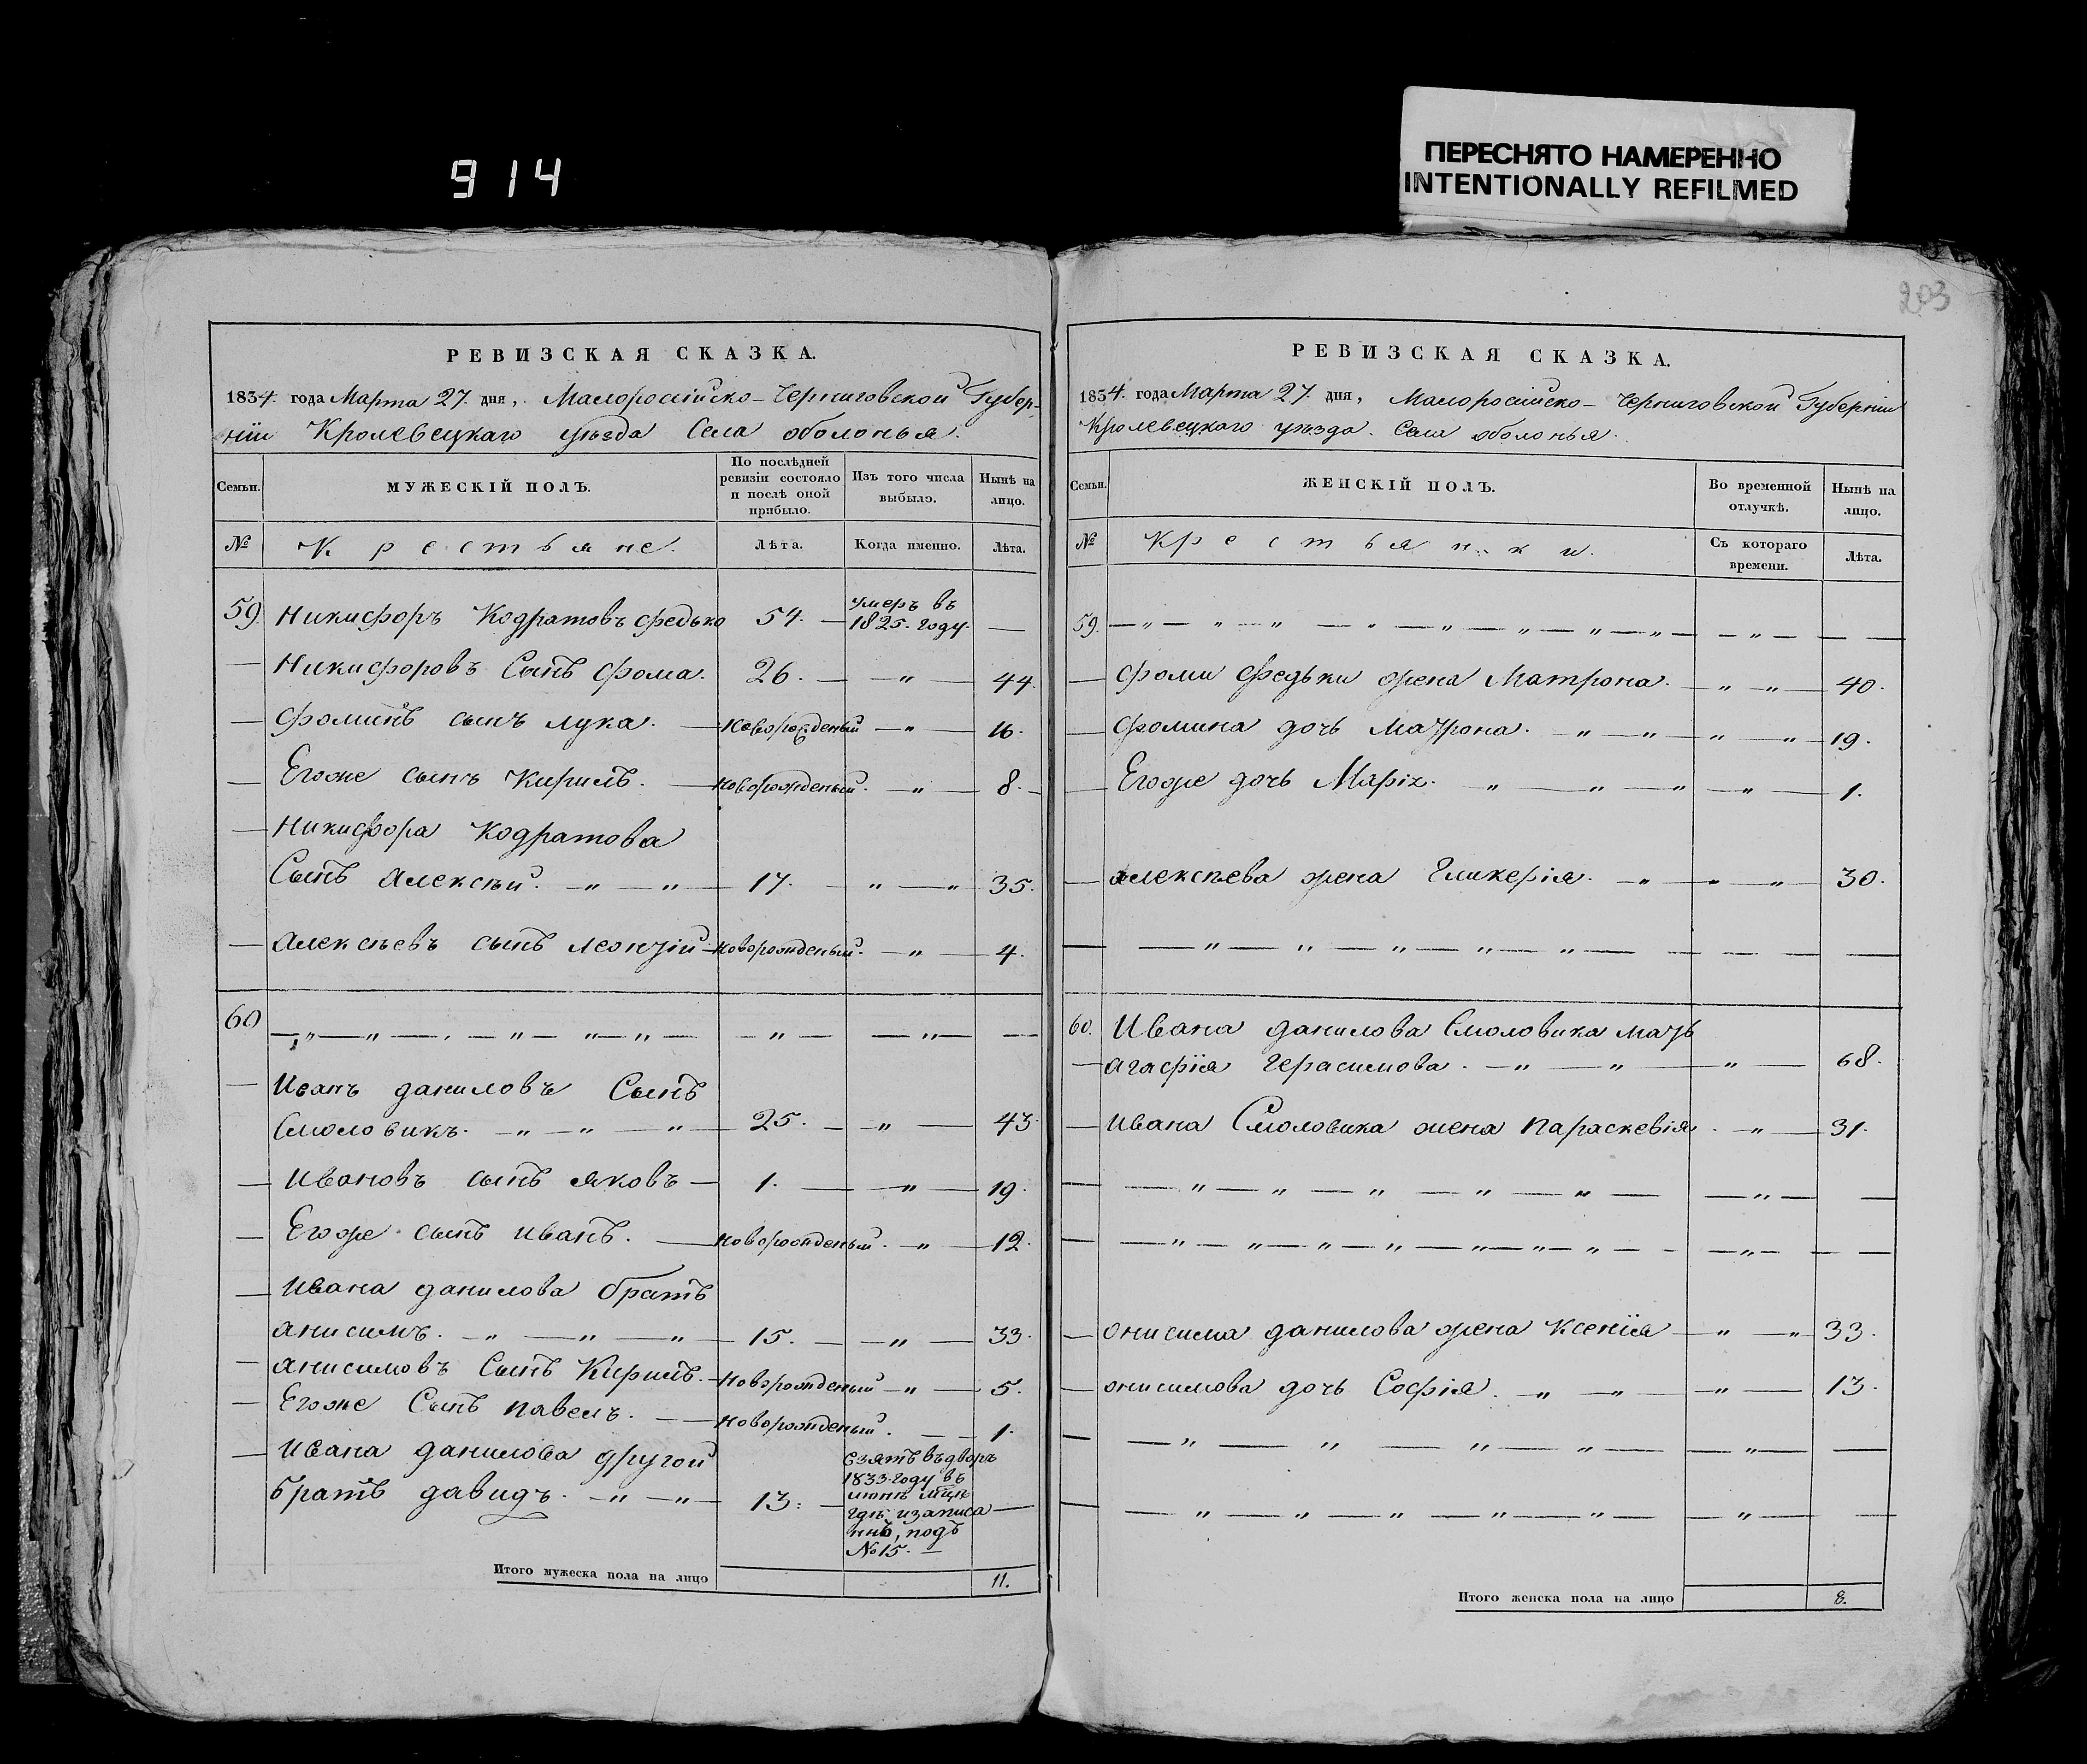 914
ПЕРЕСНЯТО НАМЕРЕННО
INTENTIONALLY REFILMED
203
РЕВИЗСКАЯ СКАЗКА.
1834. года Марта 27. дня, Малоросiйско-Черниговской Губер-
нiи Кролевецкаго уѣзда Села оболонья.
Семьи. МУЖЕСКIЙ ПОЛЪ. По послѣдней ревизiи состояло и послѣ оной прибыло. Изъ того числа выбыло. Нынѣ на лицо.
№ Крестьяне. Лѣта. Когда именно. Лѣта.
59. Никифоръ Кодратовъ Федько 54. умеръ въ 1825. году.
Никифоровъ Сынъ Фома. 26. — „ — 44.
Фоминъ сынъ лука. Новорожденый — „ — 16.
Егоже сынъ Кирилъ. новорожденый. — „ — 8.
Никифора Кодратова
Сынъ Алексѣй. — „ — „ — 17. — „ — „ 35.
Алексѣевъ сынъ леонтiй новорожденый. — „ — 4.
60
Иванъ даниловъ Сынъ
Смоловикъ. — „ — „ — „ — 25. — „ — 43.
Ивановъ сынъ яковъ — 1. — „ — 19.
Егоже сынъ иванъ. новорожденый. — „ — 12.
Ивана данилова братъ
анисимъ. — „ — „ — „ — 15. — „ — 33.
анисимовъ Сынъ Кирилъ. Новорожденый — „ — 5.
Егоже Сынъ павелъ. новорожденый. — — 1.
Ивана данилова другой
братъ давидъ. — „ — „ — 13. — взятъ въ дворъ
1833. году въ
июнѣ мцѣ
гдѣ и записа
ннъ, подъ
№ 15. —
Итого мужеска пола на лицо 11.
РЕВИЗСКАЯ СКАЗКА.
1834. года Марта 27. дня, Малоросiйско-Черниговской Губернiи
Кролевецкаго уѣзда. Села оболонья.
Семьи. ЖЕНСКIЙ ПОЛЪ. Во временной отлучкѣ. Нынѣ на лицо.
№ Крестьянки. Съ котораго времени. Лѣта.
59.
Фоми Федьки жена Матрона. — „ — „ — 40.
Фомина дочь Матрона. — „ — „ — „ — „ — 19.
Егоже дочь Марiя. „ — „ — „ — „ — 1.
алексѣева жена Гликерiя. — „ — „ — „ — 30.
60. Ивана данилова Смоловика мать
агафiя Герасимова. — „ — „ — „ — 68.
Ивана Смоловика жена параскевiя. — „ — 31.
онисима данилова жена Ксенiя — „ — „ 33.
онисимова дочь Софiя. — „ — „ — „ — 13.
Итого женска пола на лицо 8.